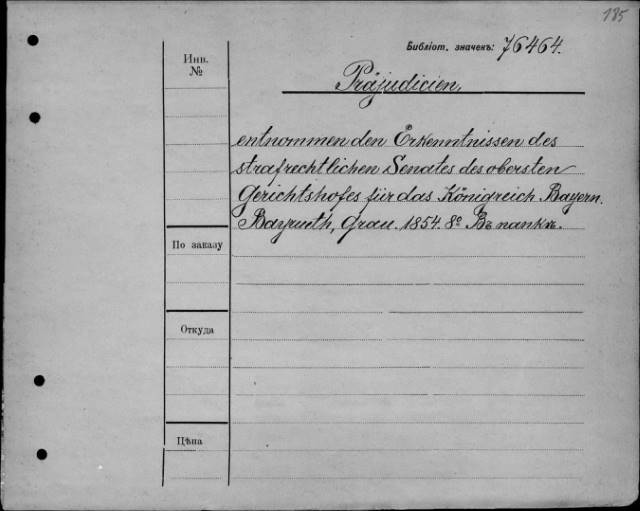 185
Библіот. значекъ: 76464.
Инв.
№
Präjudicien.
entnommen den Erkenntnissen des
strafrechtlichen Senates des obersten
Gerichtshofes für das Königreich Bayern.
Bayreuth, Grau. 1854. 8º Въ папкѣ.
По заказу
Откуда
Цѣна